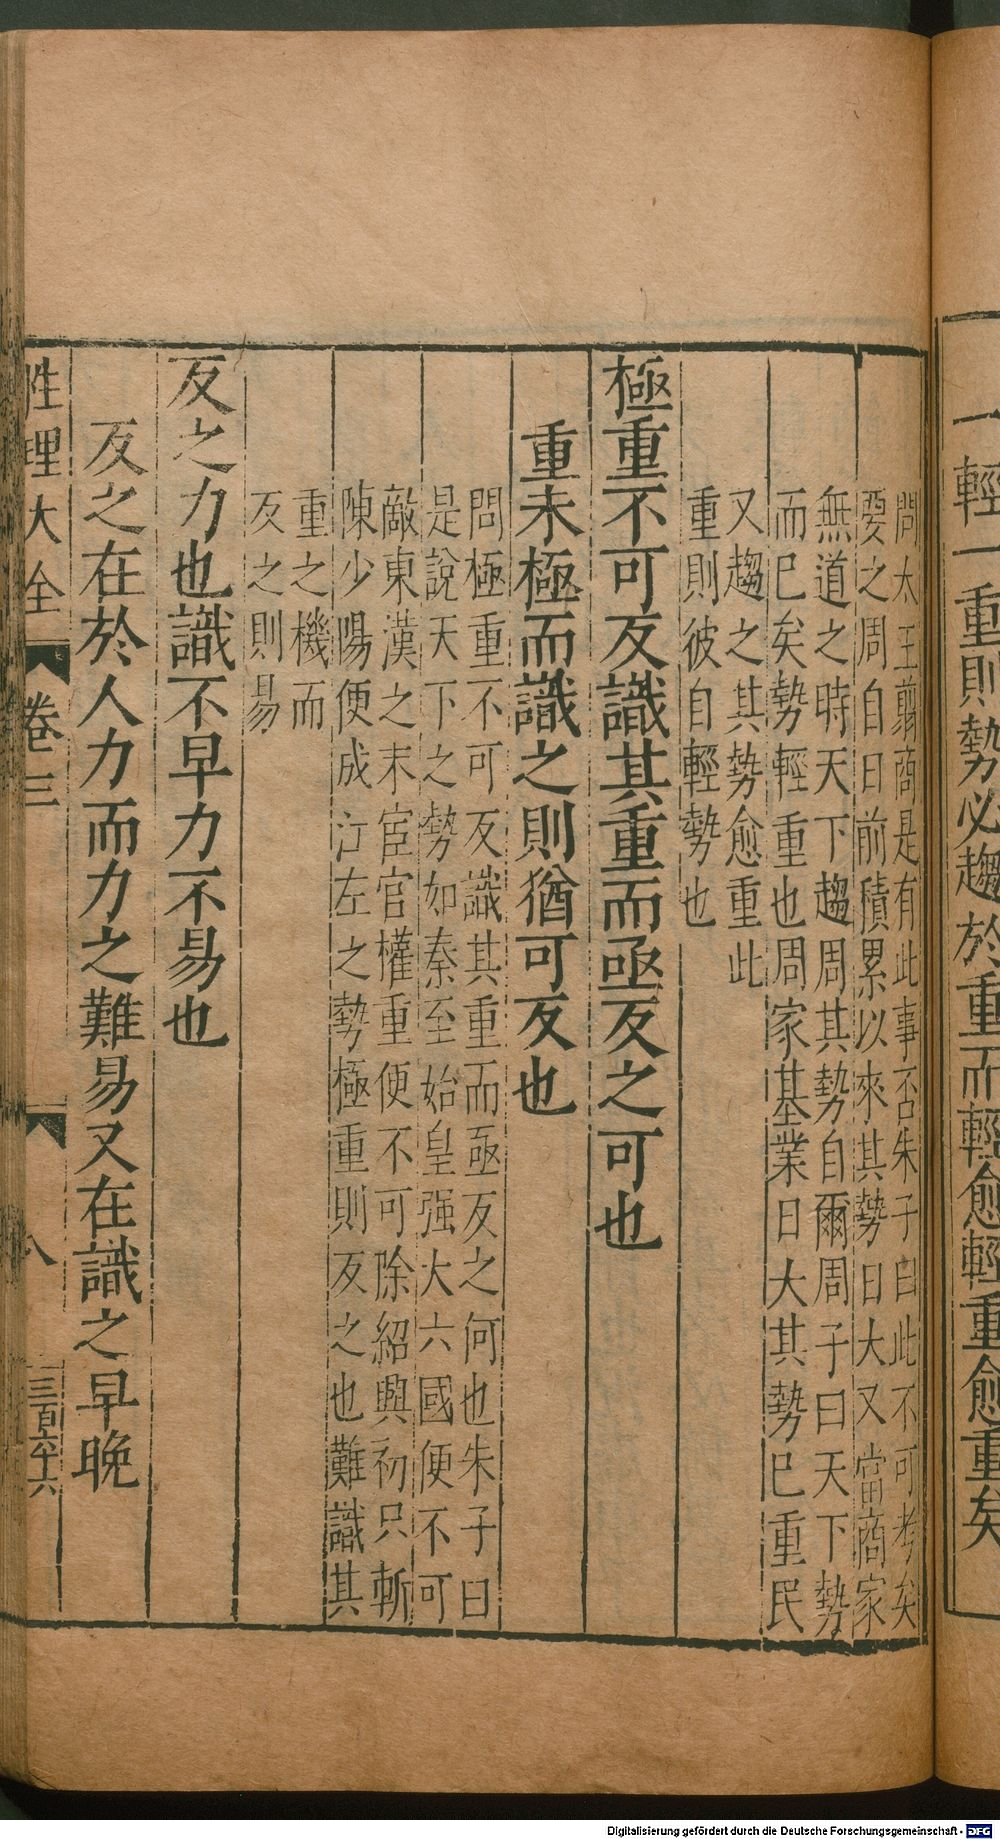 一輕一重則勢必趨於重而輕愈輕重愈重矣
問太王翦商是有此事否朱子曰此不可考矣
要之周自日前積累以來其勢日大又當商家
無道之時天下趨周其勢自爾周子曰天下勢
而巳矣勢輕重也周家基業日大其勢巳重民
又趨之其勢愈重此
重則彼自輕勢也
極重不可反識其重而亟反之可也
重未極而識之則猶可反也
問極重不可反識其重而亟反之何也朱子曰
是說天下之勢如秦至始皇强大六國便不可
敵東漢之末宦官權重便不可除紹興初只斬
陳少陽便成江左之勢極重則反之也難識其
重之機而
反之則易
反之力也識不早力不易也
反之在於人力而力之難易又在識之早晚
性理大全 卷三 八 三百六十六
Digitalisierung gefördert durch die Deutsche Forschungsgemeinschaft - DFG